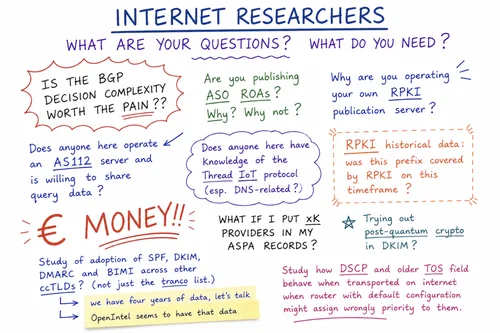 INTERNET RESEARCHERS
WHAT ARE YOUR QUESTIONS? WHAT DO YOU NEED?
IS THE BGP
DECISION COMPLEXITY
WORTH THE PAIN??
Are you publishing
ASO ROAs?
Why? Why not?
Why are you operating
your own RPKI
publication server?
Does anyone here operate
an AS112 server and
is willing to share
query data?
Does anyone here have
Knowledge of the
Thread IoT protocol
(esp. DNS-related?)
RPKI historical data:
was this prefix covered
by RPKI on this
timeframe?
€ MONEY!!
WHAT IF I PUT xK
PROVIDERS IN MY
ASPA RECORDS?
Trying out
post-quantum crypto
in DKIM?
Study of adoption of SPF, DKIM,
DMARC and BIMI across other
ccTLDs? (not just the tranco list.)
we have four years of data, let's talk
OpenIntel seems to have that data
Study how DSCP and older TOS field
behave when transported on internet
when router with default configuration
might assign wrongly priority to them.